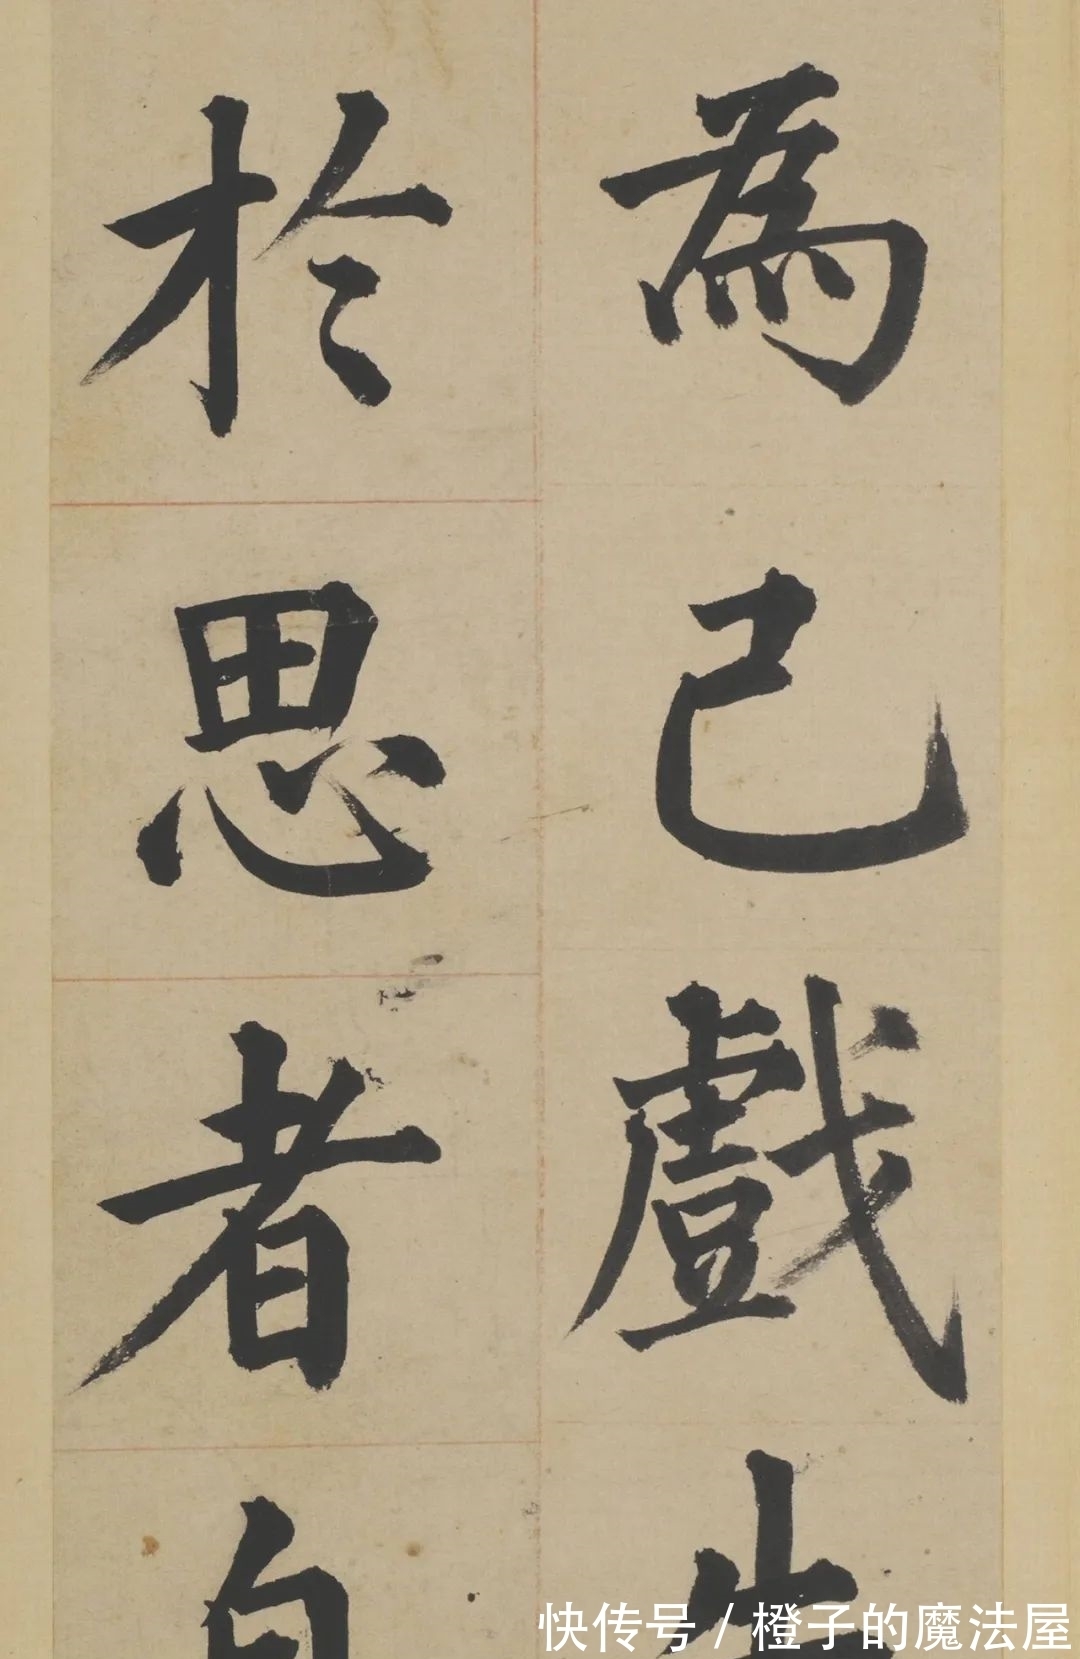 為己戲
於思者
快传号 / 橙子的魔法屋